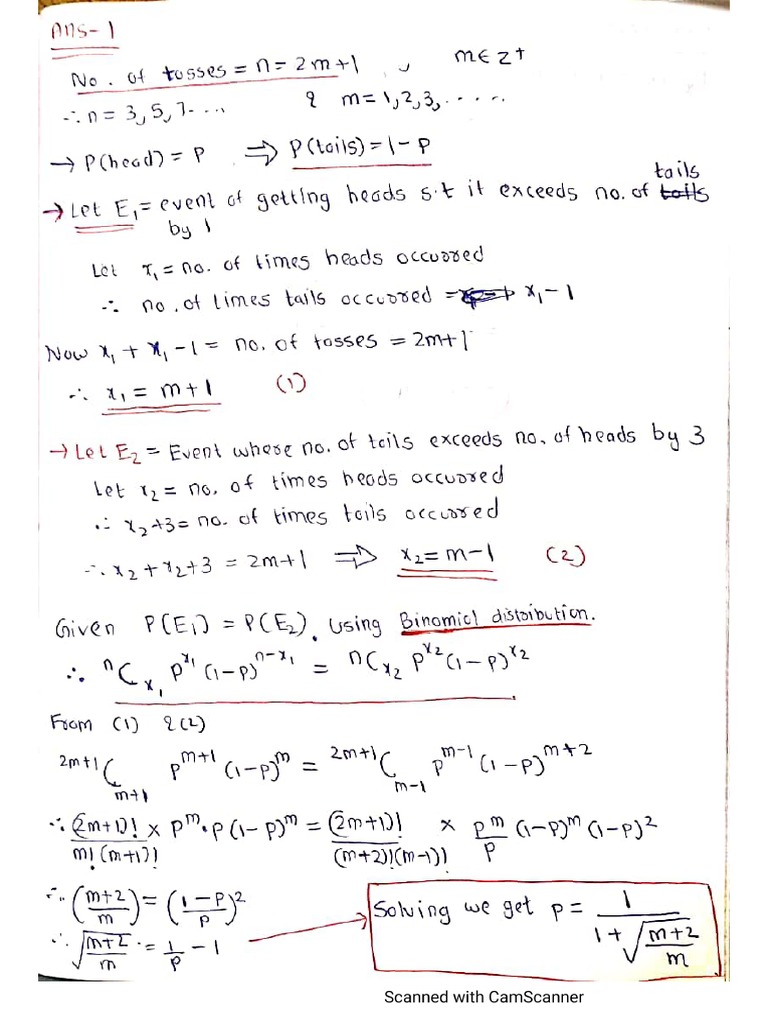 Ans-1
No. of tosses = n = 2m+1 , m ∈ Z⁺
∴ n = 3, 5, 7.... & m = 1, 2, 3, .....
→ P(head) = P ⇒ P(tails) = 1 - P
tails
→ Let E₁ = event of getting heads s.t it exceeds no. of tails
by 1
Let x₁ = no. of times heads occurred
∴ no. of times tails occurred = x₁ - 1
Now x₁ + x₁ - 1 = no. of tosses = 2m+1
∴ x₁ = m+1 (1)
→ Let E₂ = Event where no. of tails exceeds no. of heads by 3
Let x₂ = no. of times heads occurred
∴ x₂+3 = no. of times tails occurred
∴ x₂ + x₂ + 3 = 2m+1 ⇒ x₂ = m-1 (2)
Given P(E₁) = P(E₂). Using Binomial distribution.
∴ ⁿC_{x₁} P^{x₁} (1-P)^{n-x₁} = ⁿC_{x₂} P^{x₂} (1-P)^{x₂}
From (1) & (2)
^{2m+1}C_{m+1} P^{m+1} (1-P)^m = ^{2m+1}C_{m-1} P^{m-1} (1-P)^{m+2}
∴ (2m+1)!/(m!(m+1)!) × P^m · P (1-P)^m = (2m+1)!/((m+2)!(m-1)!) × P^m/P (1-P)^m (1-P)²
∴ ((m+2)/m) = ((1-P)/P)²
∴ √((m+2)/m) = 1/P - 1
Solving we get P = 1/(1+√((m+2)/m))
Scanned with CamScanner